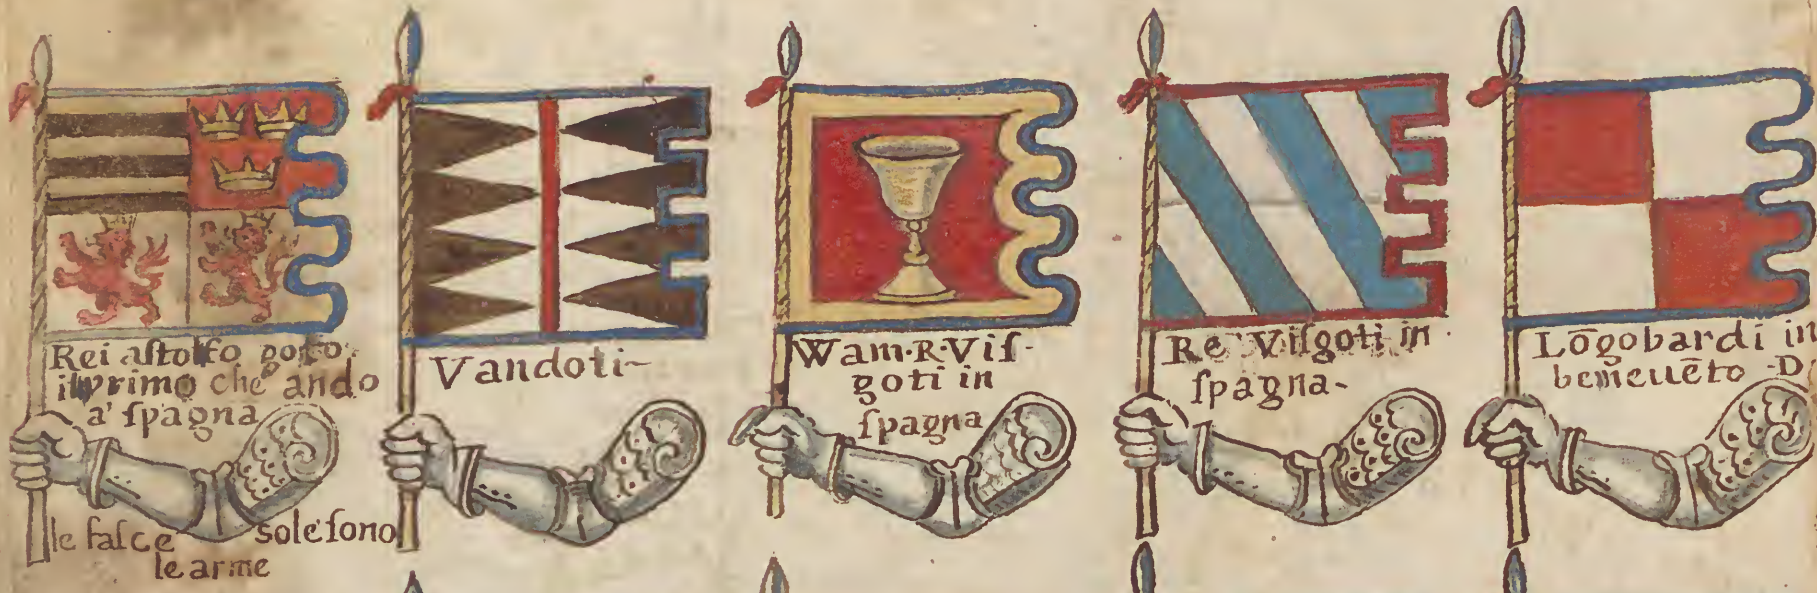 Rei aſtolfo goto
il primo che ando
a' ſpagna
le faſce sole ſono
le arme
Vandoti-
Wam·R·Viſ-
goti in
ſpagna
Re Viſgoti in
ſpagna-
Lōgobardi in
beneuēto ·D